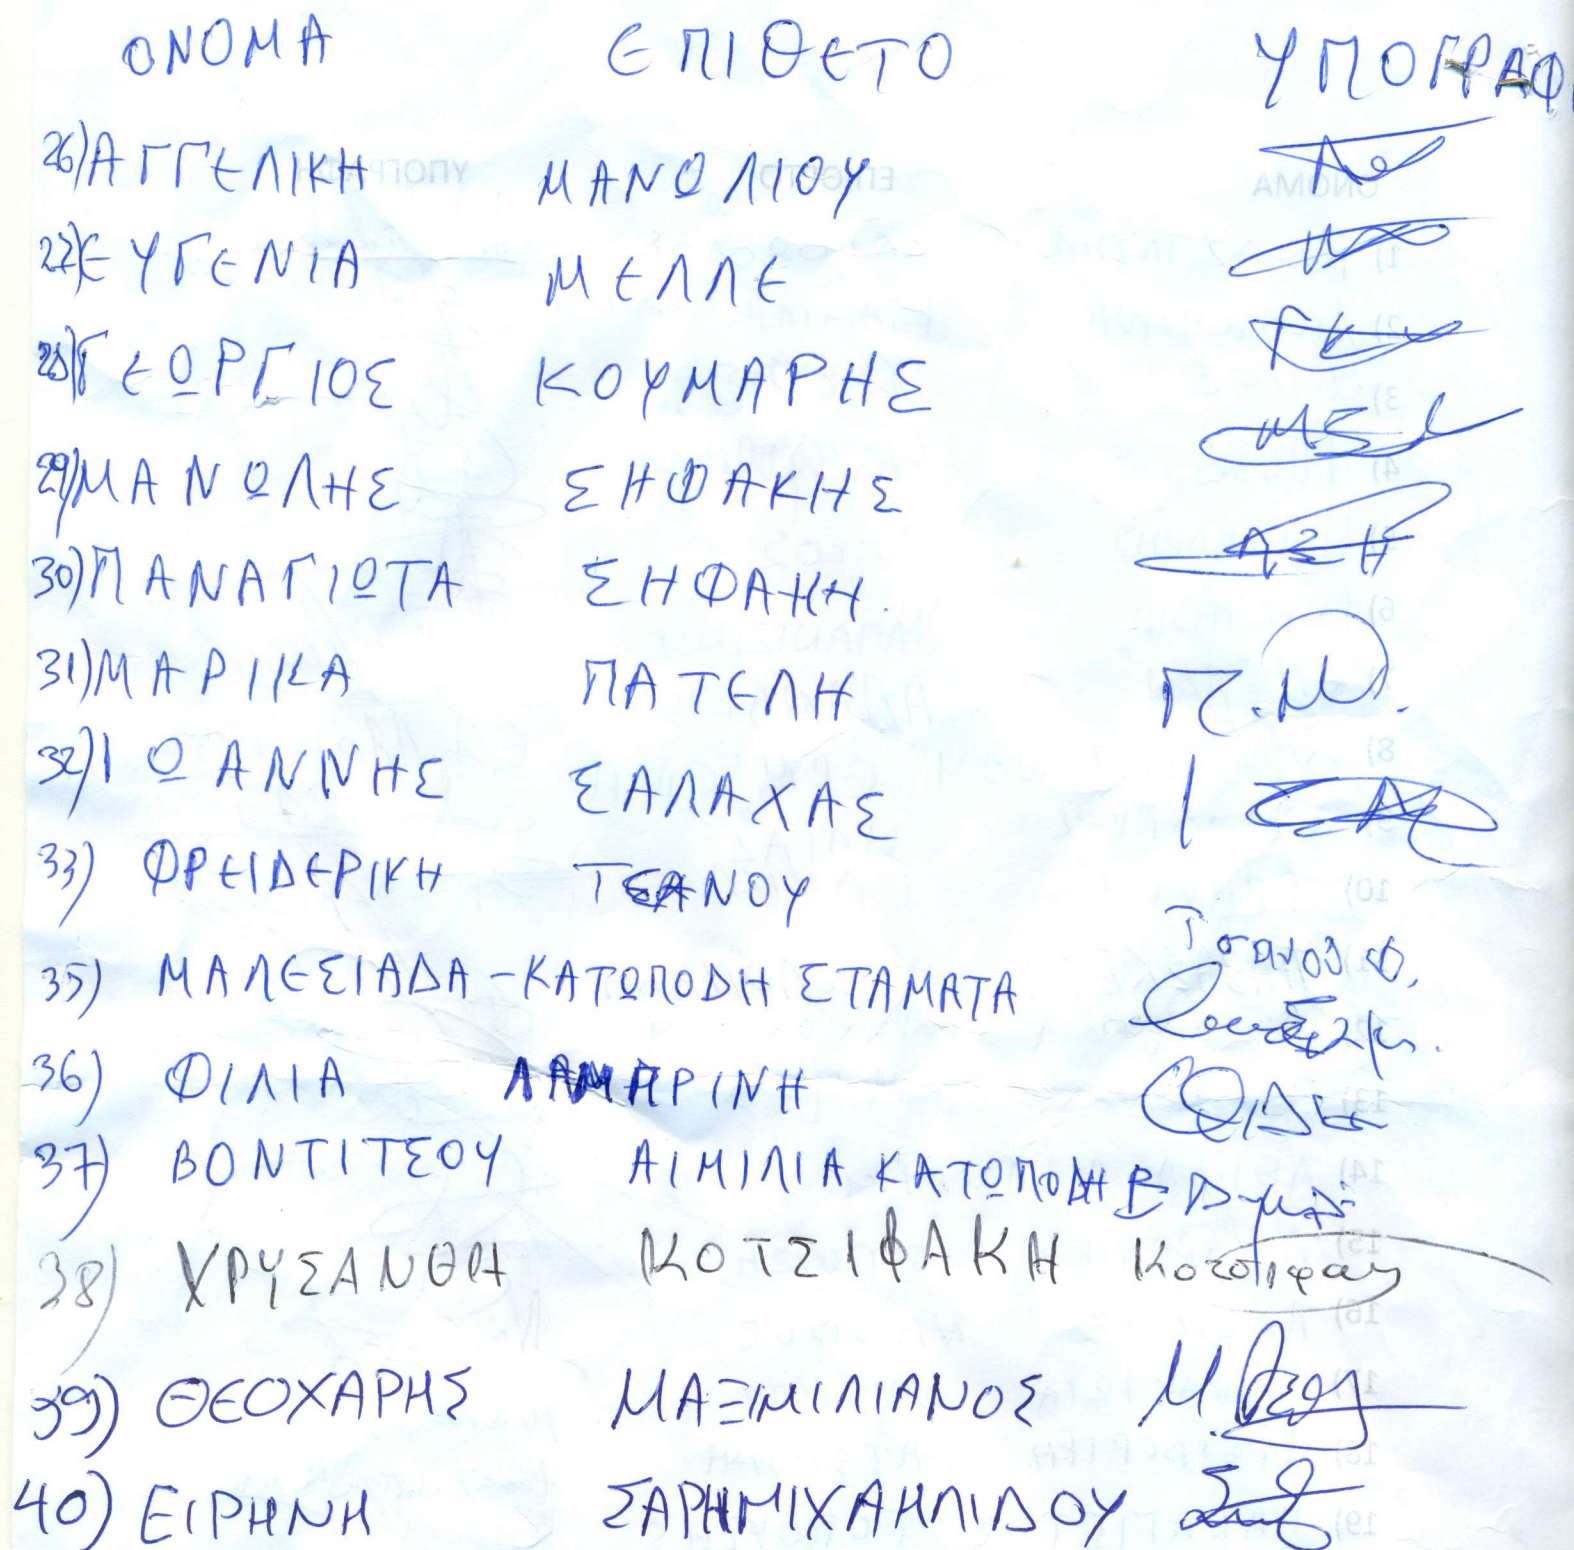 ΟΝΟΜΑ ΕΠΙΘΕΤΟ ΥΠΟΓΡΑΦ
26) ΑΓΓΕΛΙΚΗ ΜΑΝΩΛΙΟΥ
27) ΕΥΓΕΝΙΑ ΜΕΛΛΕ
28) ΓΕΩΡΓΙΟΣ ΚΟΥΜΑΡΗΣ
29) ΜΑΝΩΛΗΣ ΣΗΦΑΚΗΣ
30) ΠΑΝΑΓΙΩΤΑ ΣΗΦΑΚΗ.
31) ΜΑΡΙΚΑ ΠΑΤΕΛΗ Π.Μ.
32) ΙΩΑΝΝΗΣ ΣΑΛΑΧΑΣ
33) ΦΡΕΙΔΕΡΙΚΗ ΤΣΑΝΟΥ Τσανου Φ.
35) ΜΑΛΕΣΙΑΔΑ - ΚΑΤΩΠΟΔΗ ΣΤΑΜΑΤΑ
36) ΦΙΛΙΑ ΛΑΜΠΡΙΝΗ
37) ΒΟΝΤΙΤΣΟΥ ΑΙΜΙΛΙΑ ΚΑΤΩΠΟΔΗ
38) ΧΡΥΣΑΝΘΗ ΚΟΤΣΙΦΑΚΗ Κοτσιφακη
39) ΘΕΟΧΑΡΗΣ ΜΑΞΙΜΙΛΙΑΝΟΣ
40) ΕΙΡΗΝΗ ΣΑΡΗΜΙΧΑΗΛΙΔΟΥ